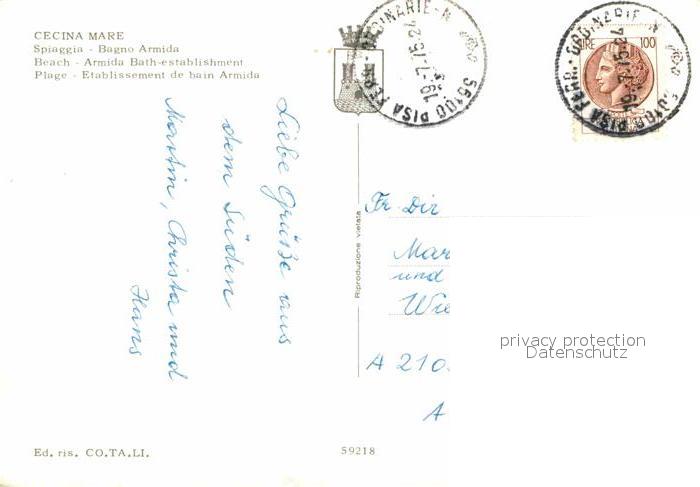 CECINA MARE
Spiaggia - Bagno Armida
Beach - Armida Bath-establishment
Plage - Etablissement de bain Armida
Liebe Grüße aus
dem Süden
Martin, Christa und
Hans
Riproduzione vietata
ORDINARIE
19-7-75-24
56100 PISA FERR.
LIRE 100
ORDINARIE
56100 PISA FERR.
Fr. Dir
Mar
und
Wie
A 210.
A
privacy protection
Datenschutz
Ed. ris. CO.TA.LI.
59218